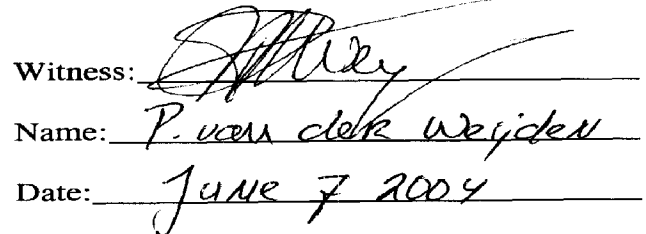 Witness:
Name: P. van der Weijden
Date: June 7 2004